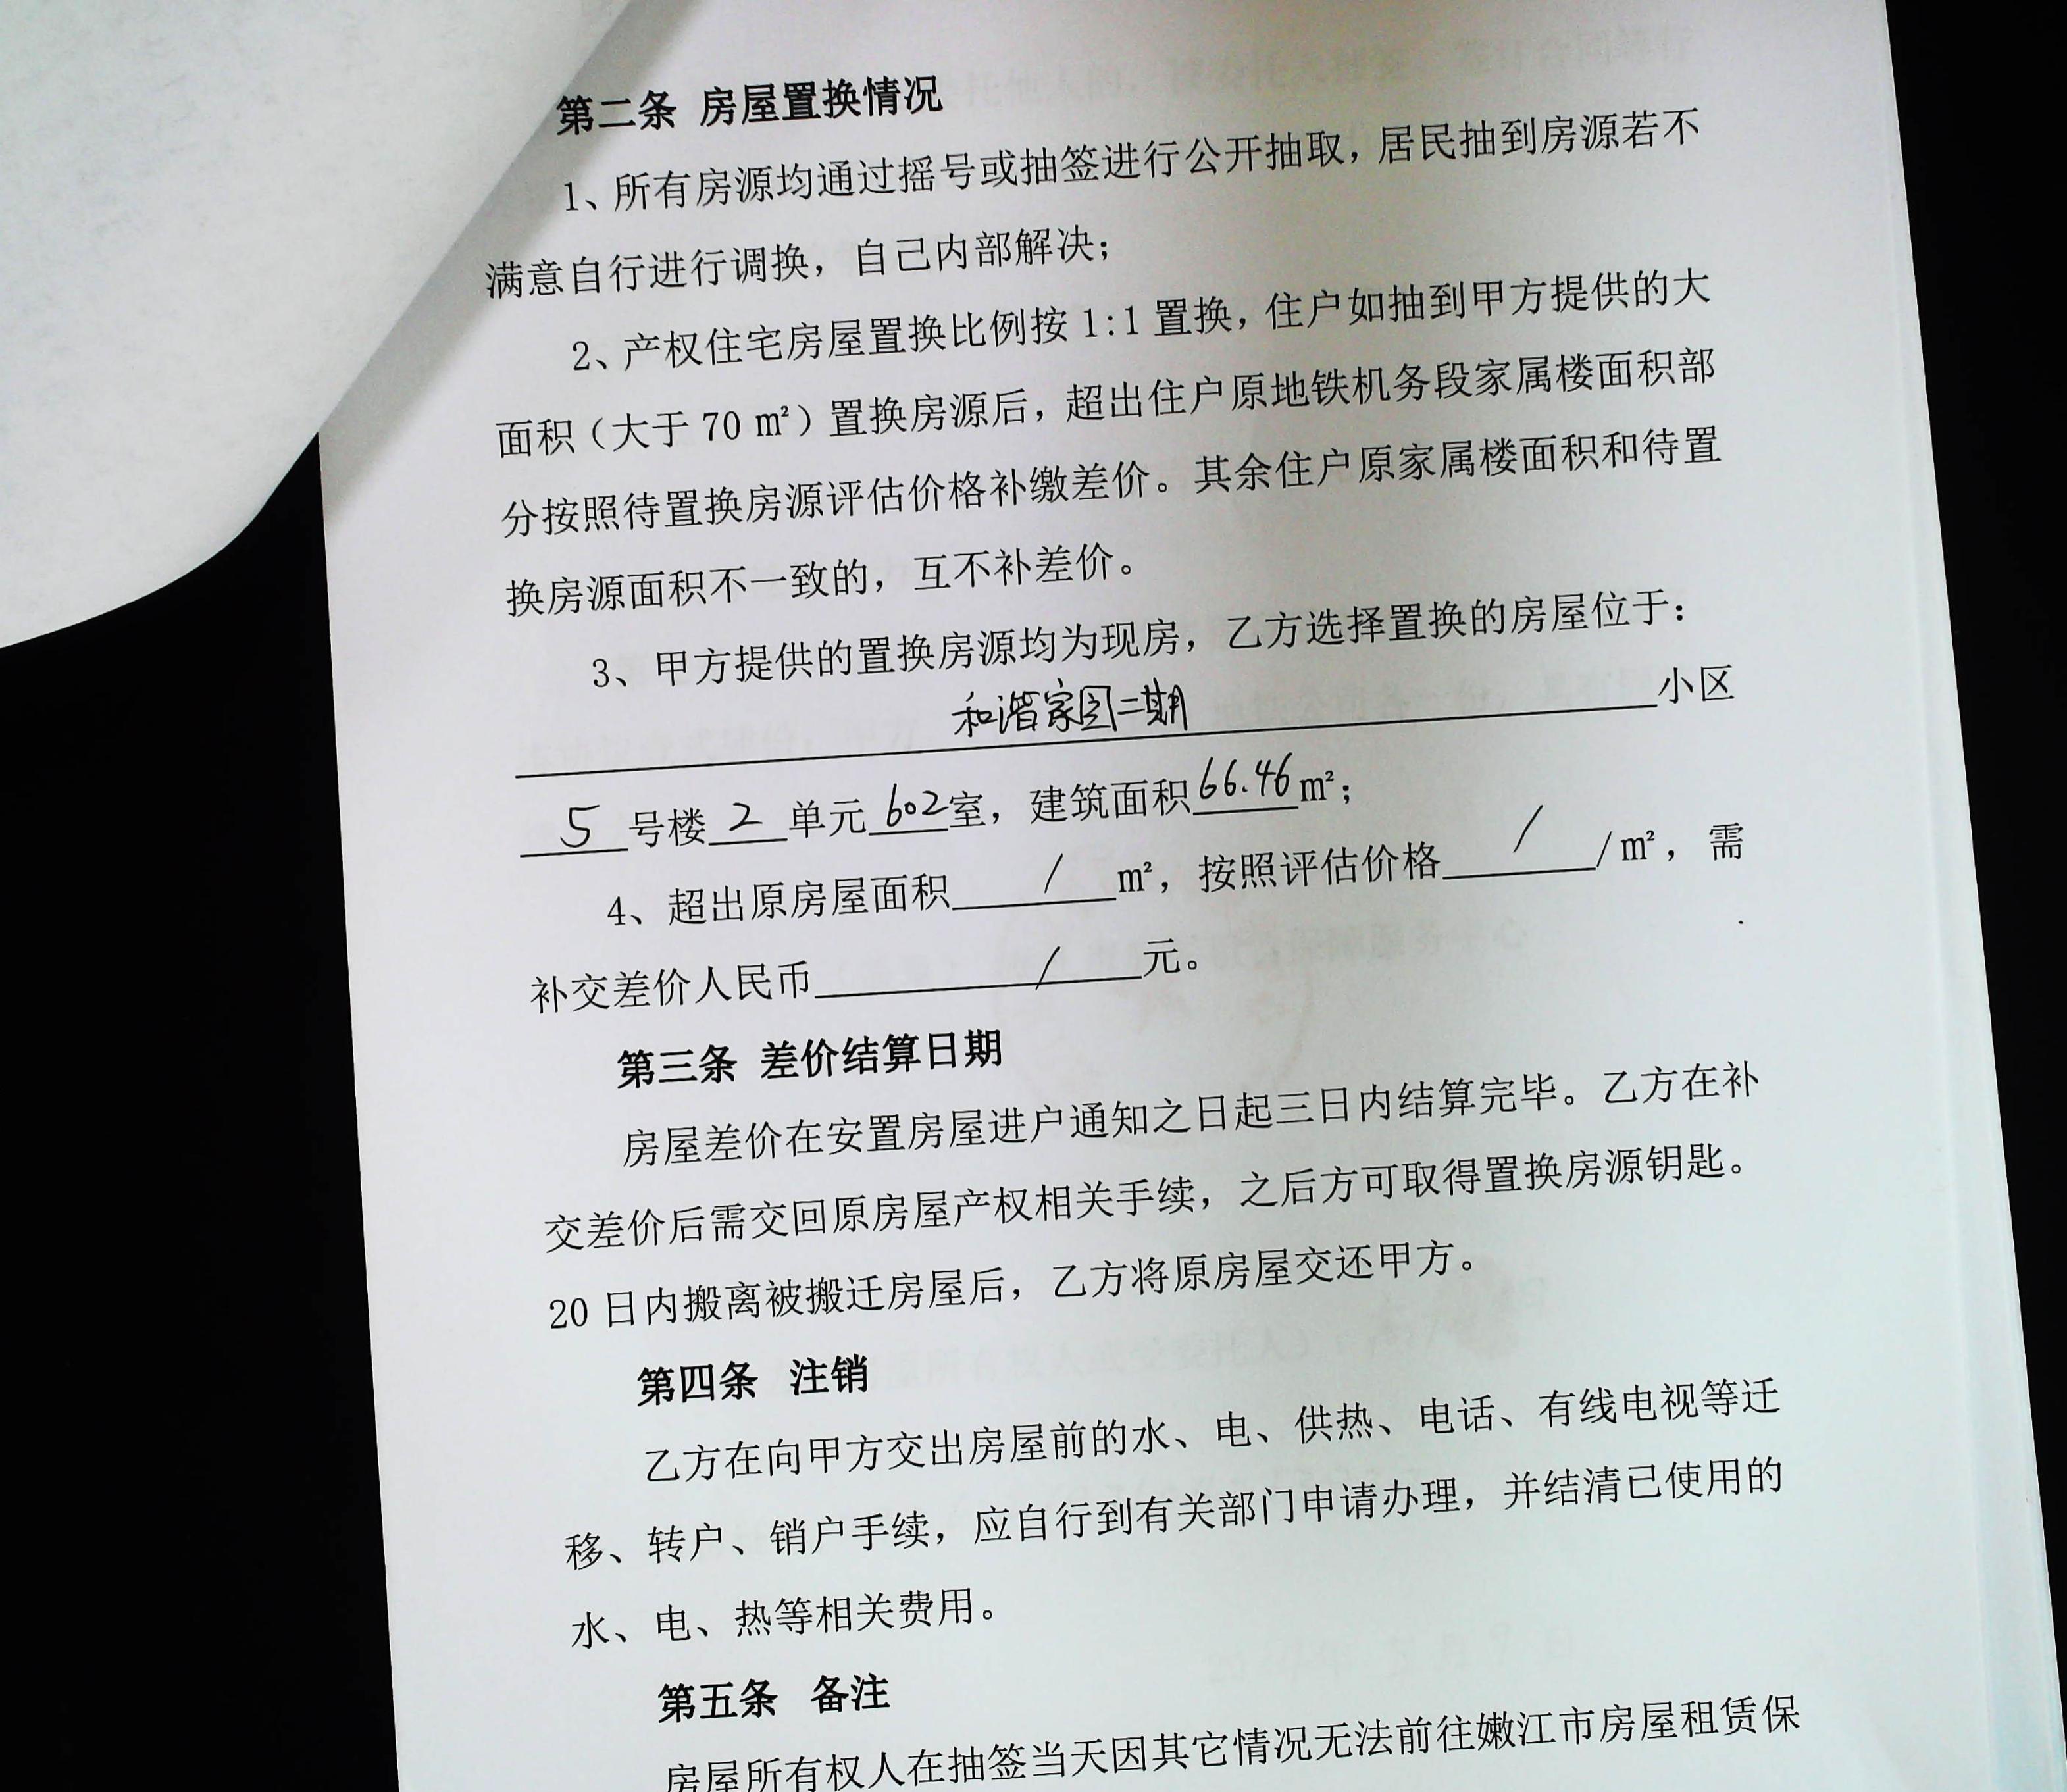 第二条 房屋置换情况
1、所有房源均通过摇号或抽签进行公开抽取，居民抽到房源若不
满意自行进行调换，自己内部解决；
2、产权住宅房屋置换比例按 1:1 置换，住户如抽到甲方提供的大
面积（大于 70 ㎡）置换房源后，超出住户原地铁机务段家属楼面积部
分按照待置换房源评估价格补缴差价。其余住户原家属楼面积和待置
换房源面积不一致的，互不补差价。
3、甲方提供的置换房源均为现房，乙方选择置换的房屋位于：
和谐家园二期小区
5号楼2单元602室，建筑面积66.46㎡；
4、超出原房屋面积/㎡，按照评估价格/ /㎡，需
补交差价人民币/元。
第三条 差价结算日期
房屋差价在安置房屋进户通知之日起三日内结算完毕。乙方在补
交差价后需交回原房屋产权相关手续，之后方可取得置换房源钥匙。
20 日内搬离被搬迁房屋后，乙方将原房屋交还甲方。
第四条 注销
乙方在向甲方交出房屋前的水、电、供热、电话、有线电视等迁
移、转户、销户手续，应自行到有关部门申请办理，并结清已使用的
水、电、热等相关费用。
第五条 备注
房屋所有权人在抽签当天因其它情况无法前往嫩江市房屋租赁保